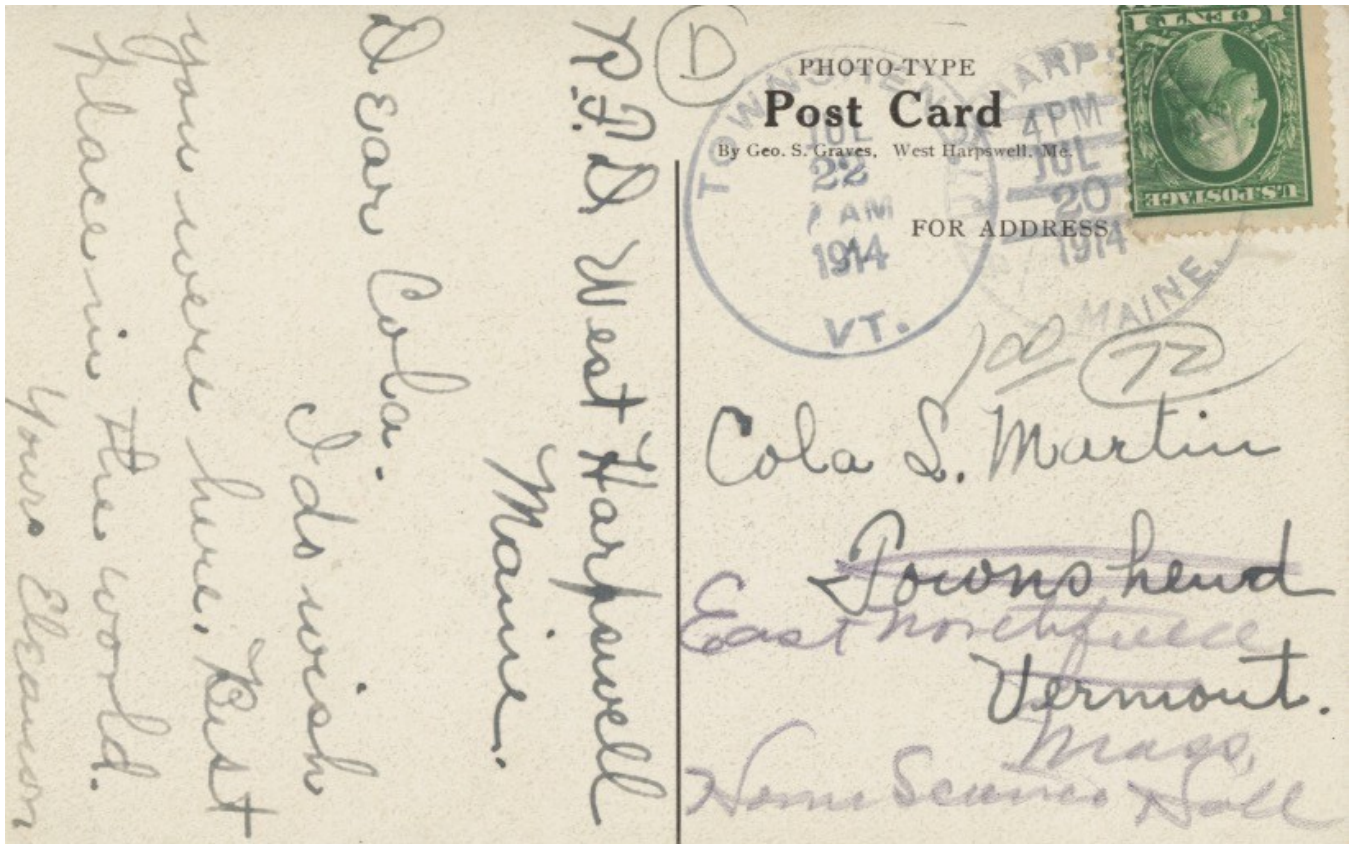 R.F.D. West Harpswell
Maine.
Dear Cola.
I do wish
you were here. Best
place in the world.
Yours Eleanor
D
PHOTO-TYPE
Post Card
By Geo. S. Graves, West Harpswell, Me.
FOR ADDRESS
TOWNSHEND
JUL
22
AM
1914
VT.
HARP
4PM
JUL
20
1914
MAINE.
1 CENT
U.S. POSTAGE
100
72
Cola S. Martin
Townshend
East Northfield
Vermont.
Mass,
Home Science Hall